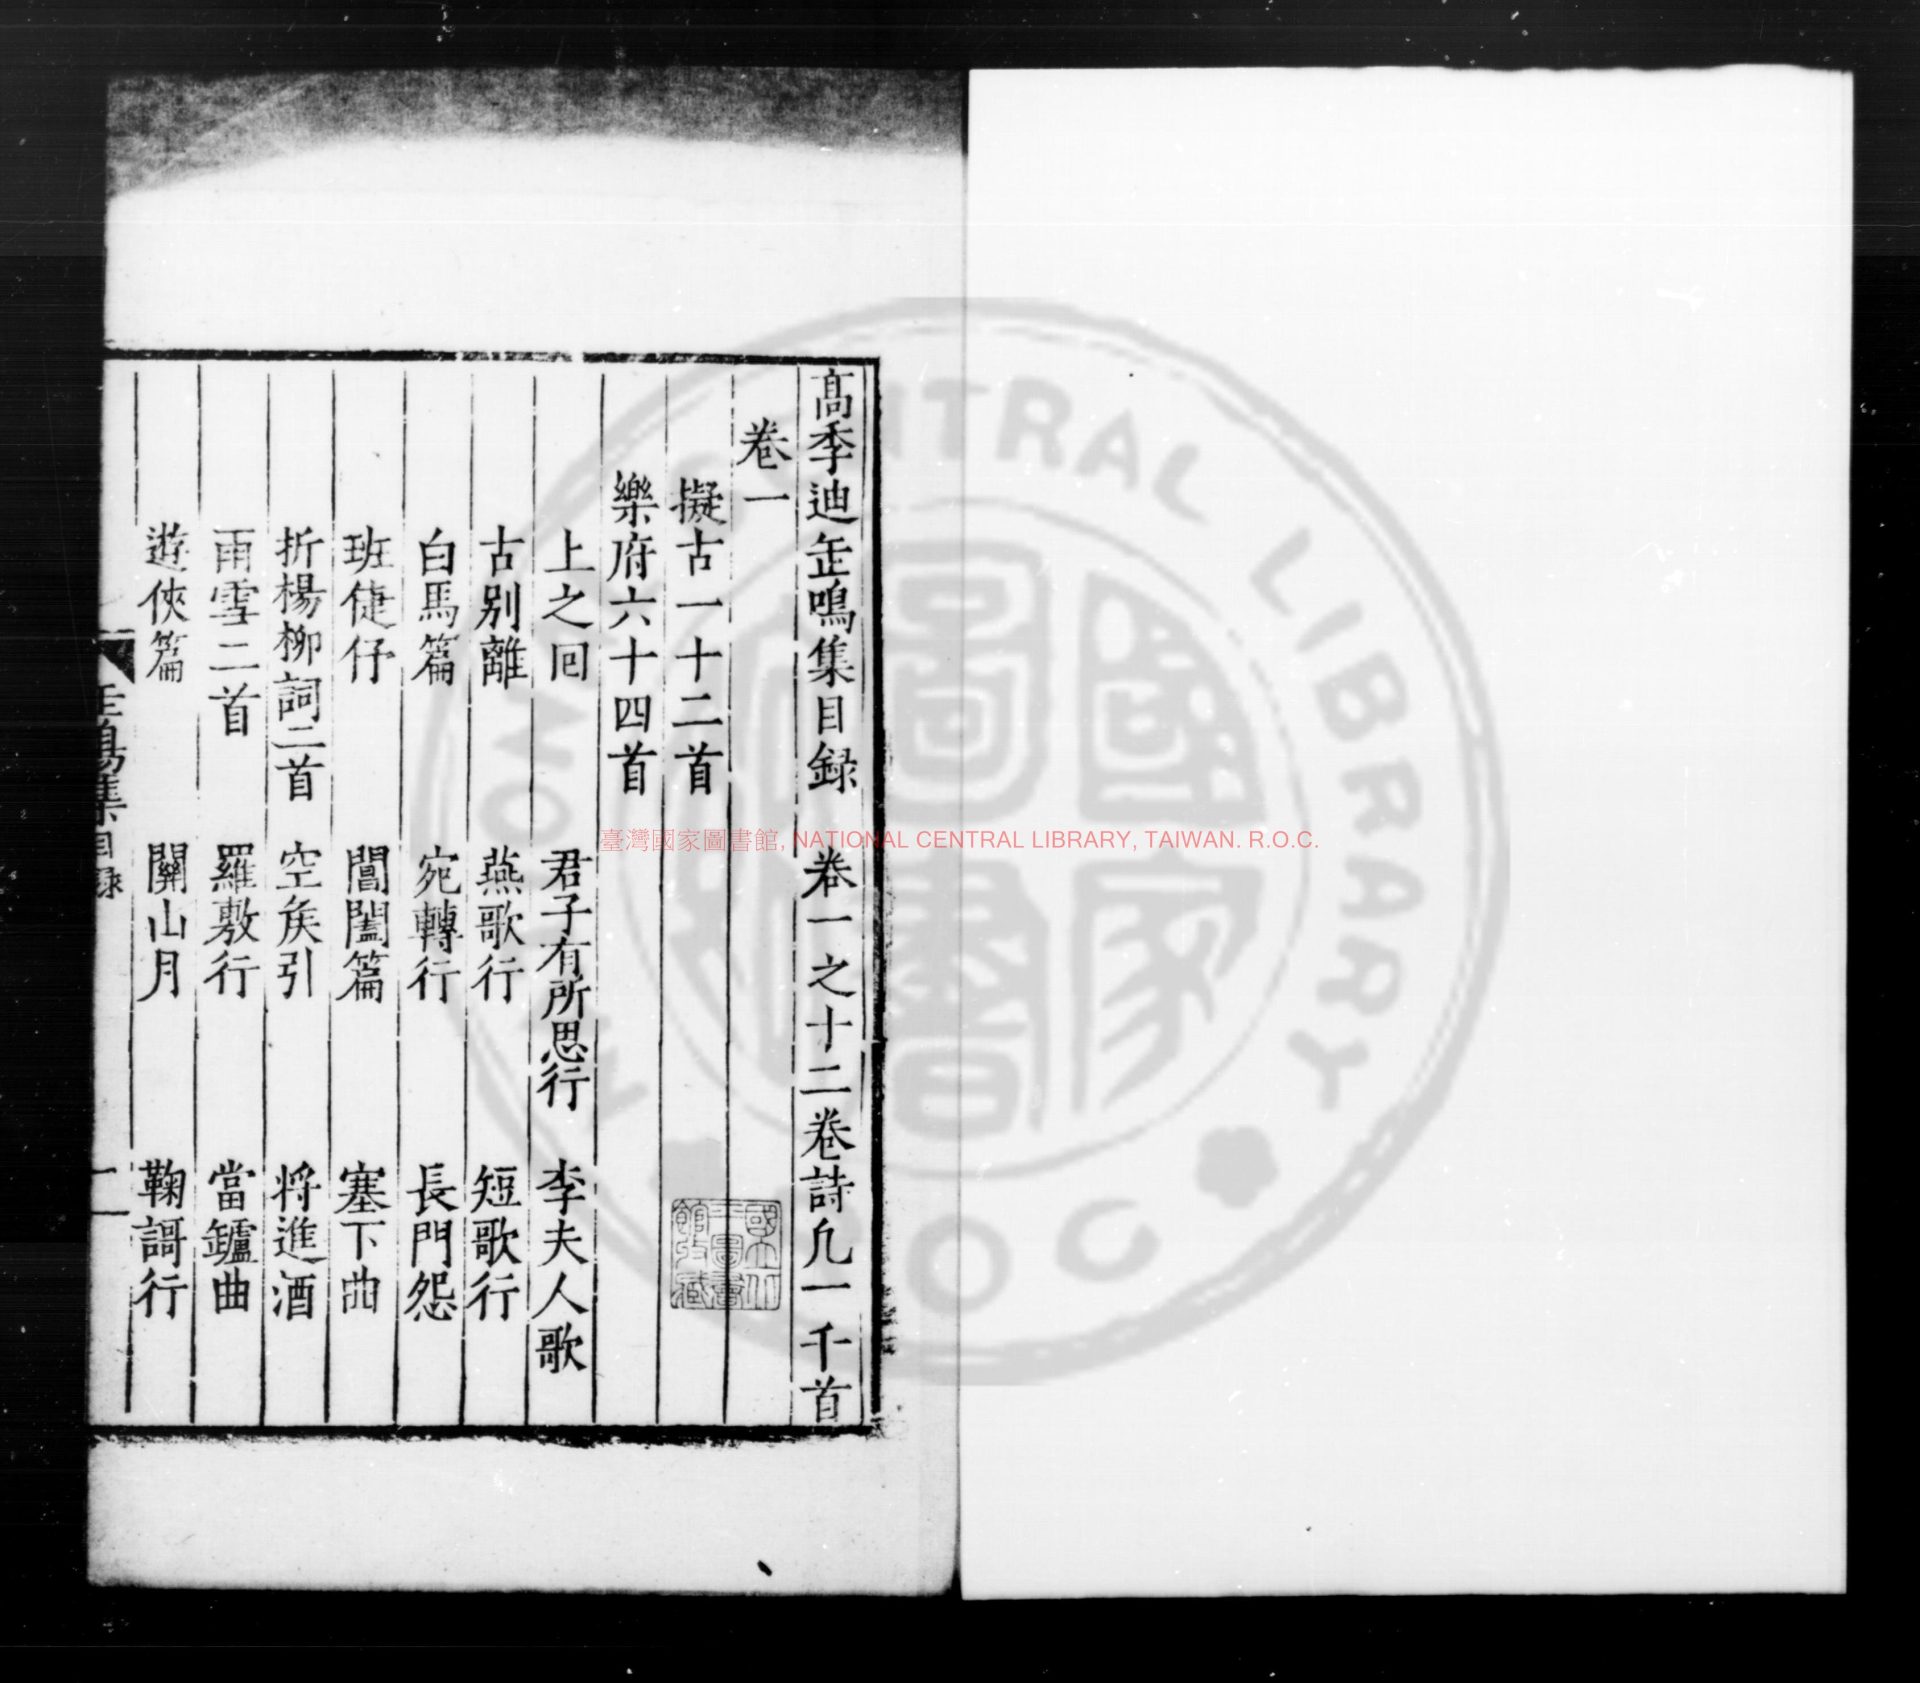 高季迪缶鳴集目録 卷一之十二卷詩凢一千首
卷一
擬古一十二首
樂府六十四首
上之囘 君子有所思行 李夫人歌
古别離 燕歌行 短歌行
白馬篇 宛轉行 長門怨
班倢伃 閶闔篇 塞下曲
折楊柳詞二首 空矦引 将進酒
雨雪二首 羅敷行 當鑪曲
遊俠篇 關山月 鞠謌行
缶鳴集目録
國立中央圖書館收藏
臺灣國家圖書館, NATIONAL CENTRAL LIBRARY, TAIWAN. R.O.C.
國家圖書
NATIONAL CENTRAL LIBRARY